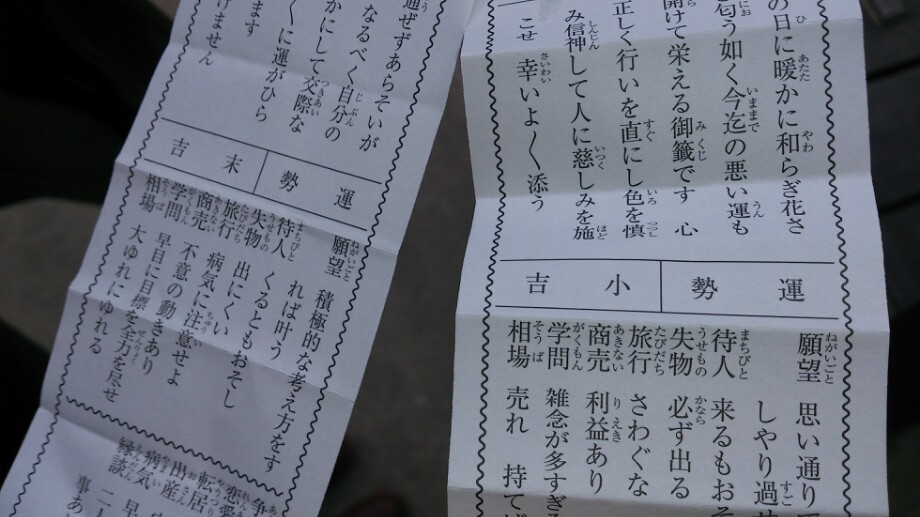 の日に暖かに和らぎ花さ
匂う如く今迄の悪い運も
開けて栄える御籤です 心
正しく行いを直にし色を慎
み信神して人に慈しみを施
こせ 幸いよ〱添う
運勢 小吉
願望 思い通り
しやり過せ
待人 来るもおそ
失物 必ず出る
旅行 さわぐな
商売 利益あり
学問 雑念が多すぎ
相場 売れ 持て
通ぜずあらそいが
なるべく自分の
かにして交際な
くに運がひら
ます
けません
運勢 末吉
願望 積極的な考え方をす
れば叶う
待人 くるともおそし
失物 出にくい
旅行 病気に注意せよ
商売 不意の動きあり
学問 早目に目標を全力を尽せ
相場 大ゆれにゆれる
争
恋愛
転居
出産
病気 早
縁談 二
事あ